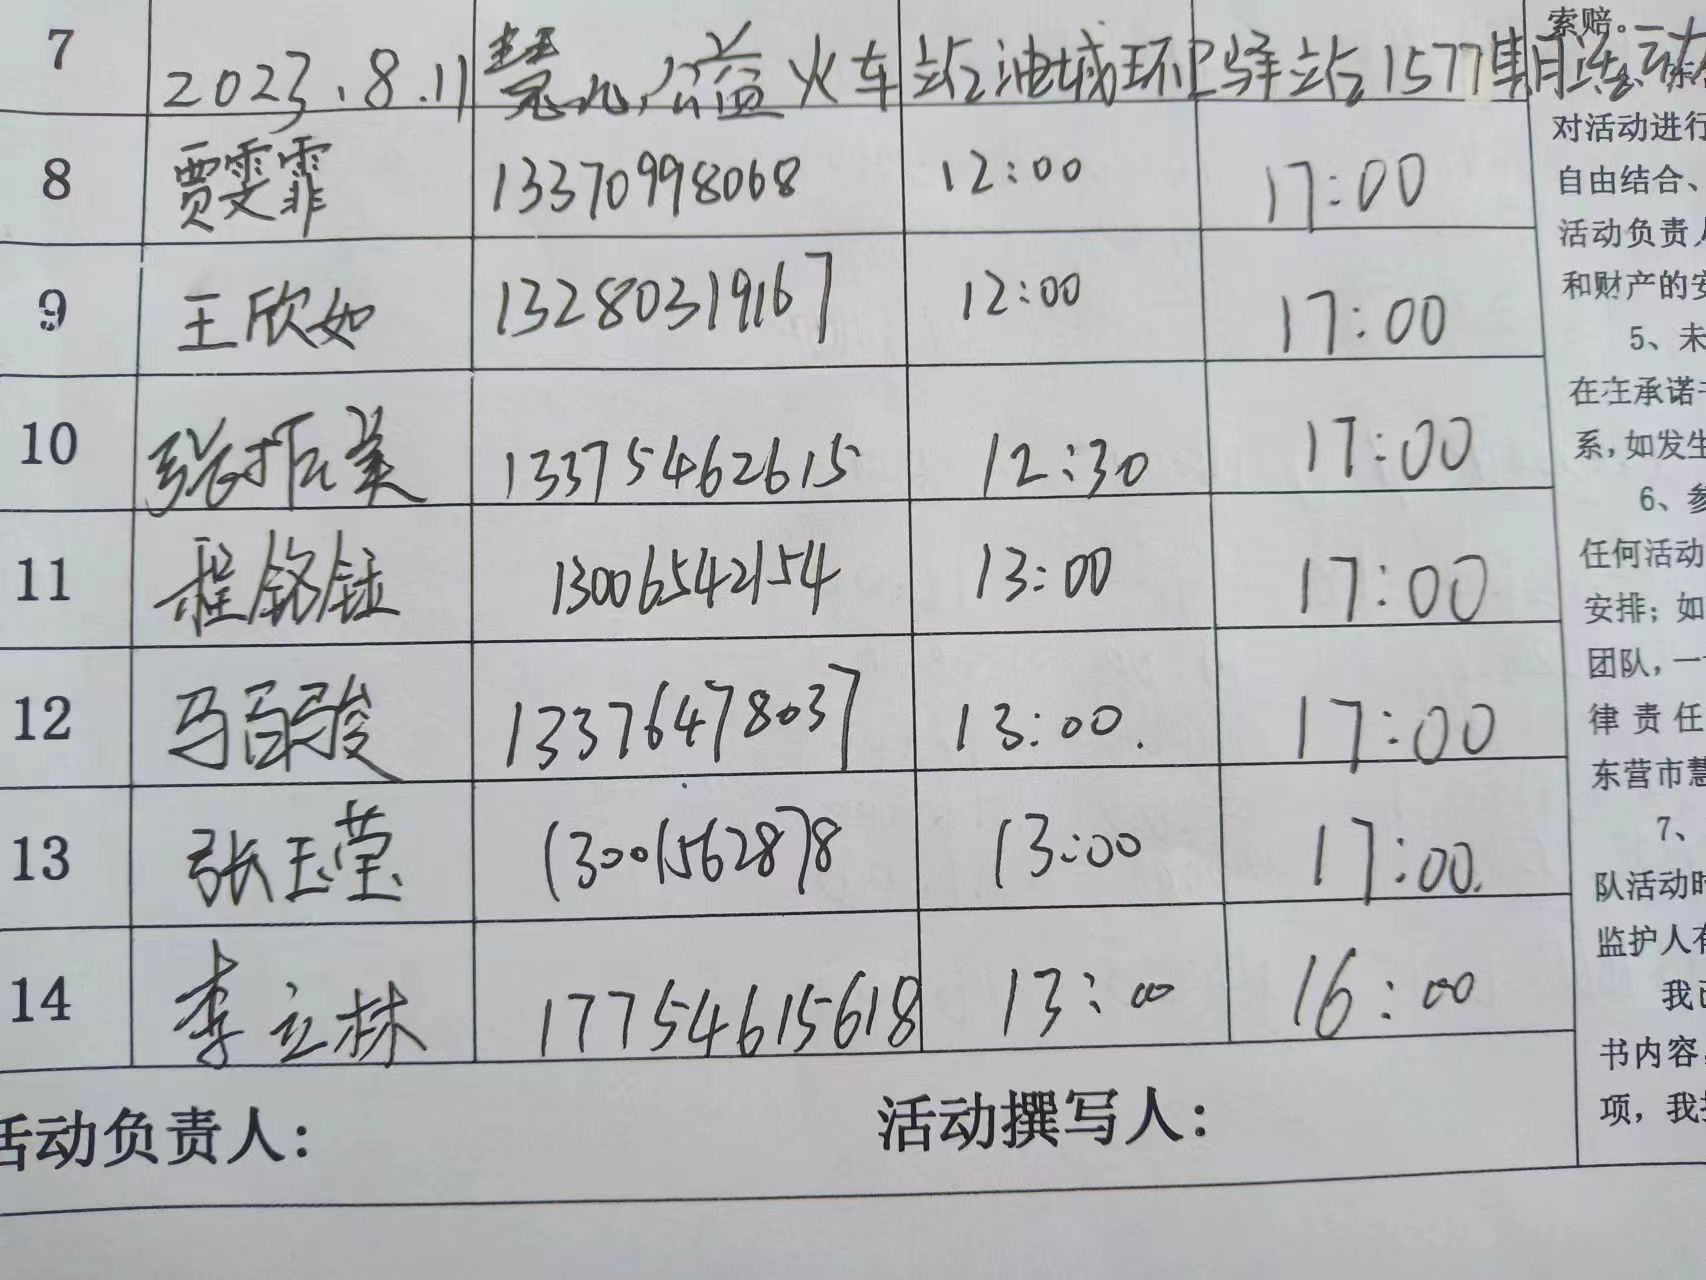 7 2023.8.11 慧心公益火车站油城环卫驿站1577期活动
8 贾雯霏 13370998068 12:00 17:00
9 王欣如 13280319167 12:00 17:00
10 张振美 13375462615 12:30 17:00
11 程铭钰 13006542154 13:00 17:00
12 马百骏 13376478037 13:00. 17:00
13 张玉莹 13001562878 13:00 17:00.
14 李立林 17754615618 13:00 16:00
活动负责人: 活动撰写人:
索赔。
对活动进行
自由结合、
活动负责人
和财产的安
5、未
在在承诺书
系,如发生
6、参
任何活动
安排;如
团队,一
律责任
东营市慧
7、
队活动时
监护人有
我已
书内容,
项,我